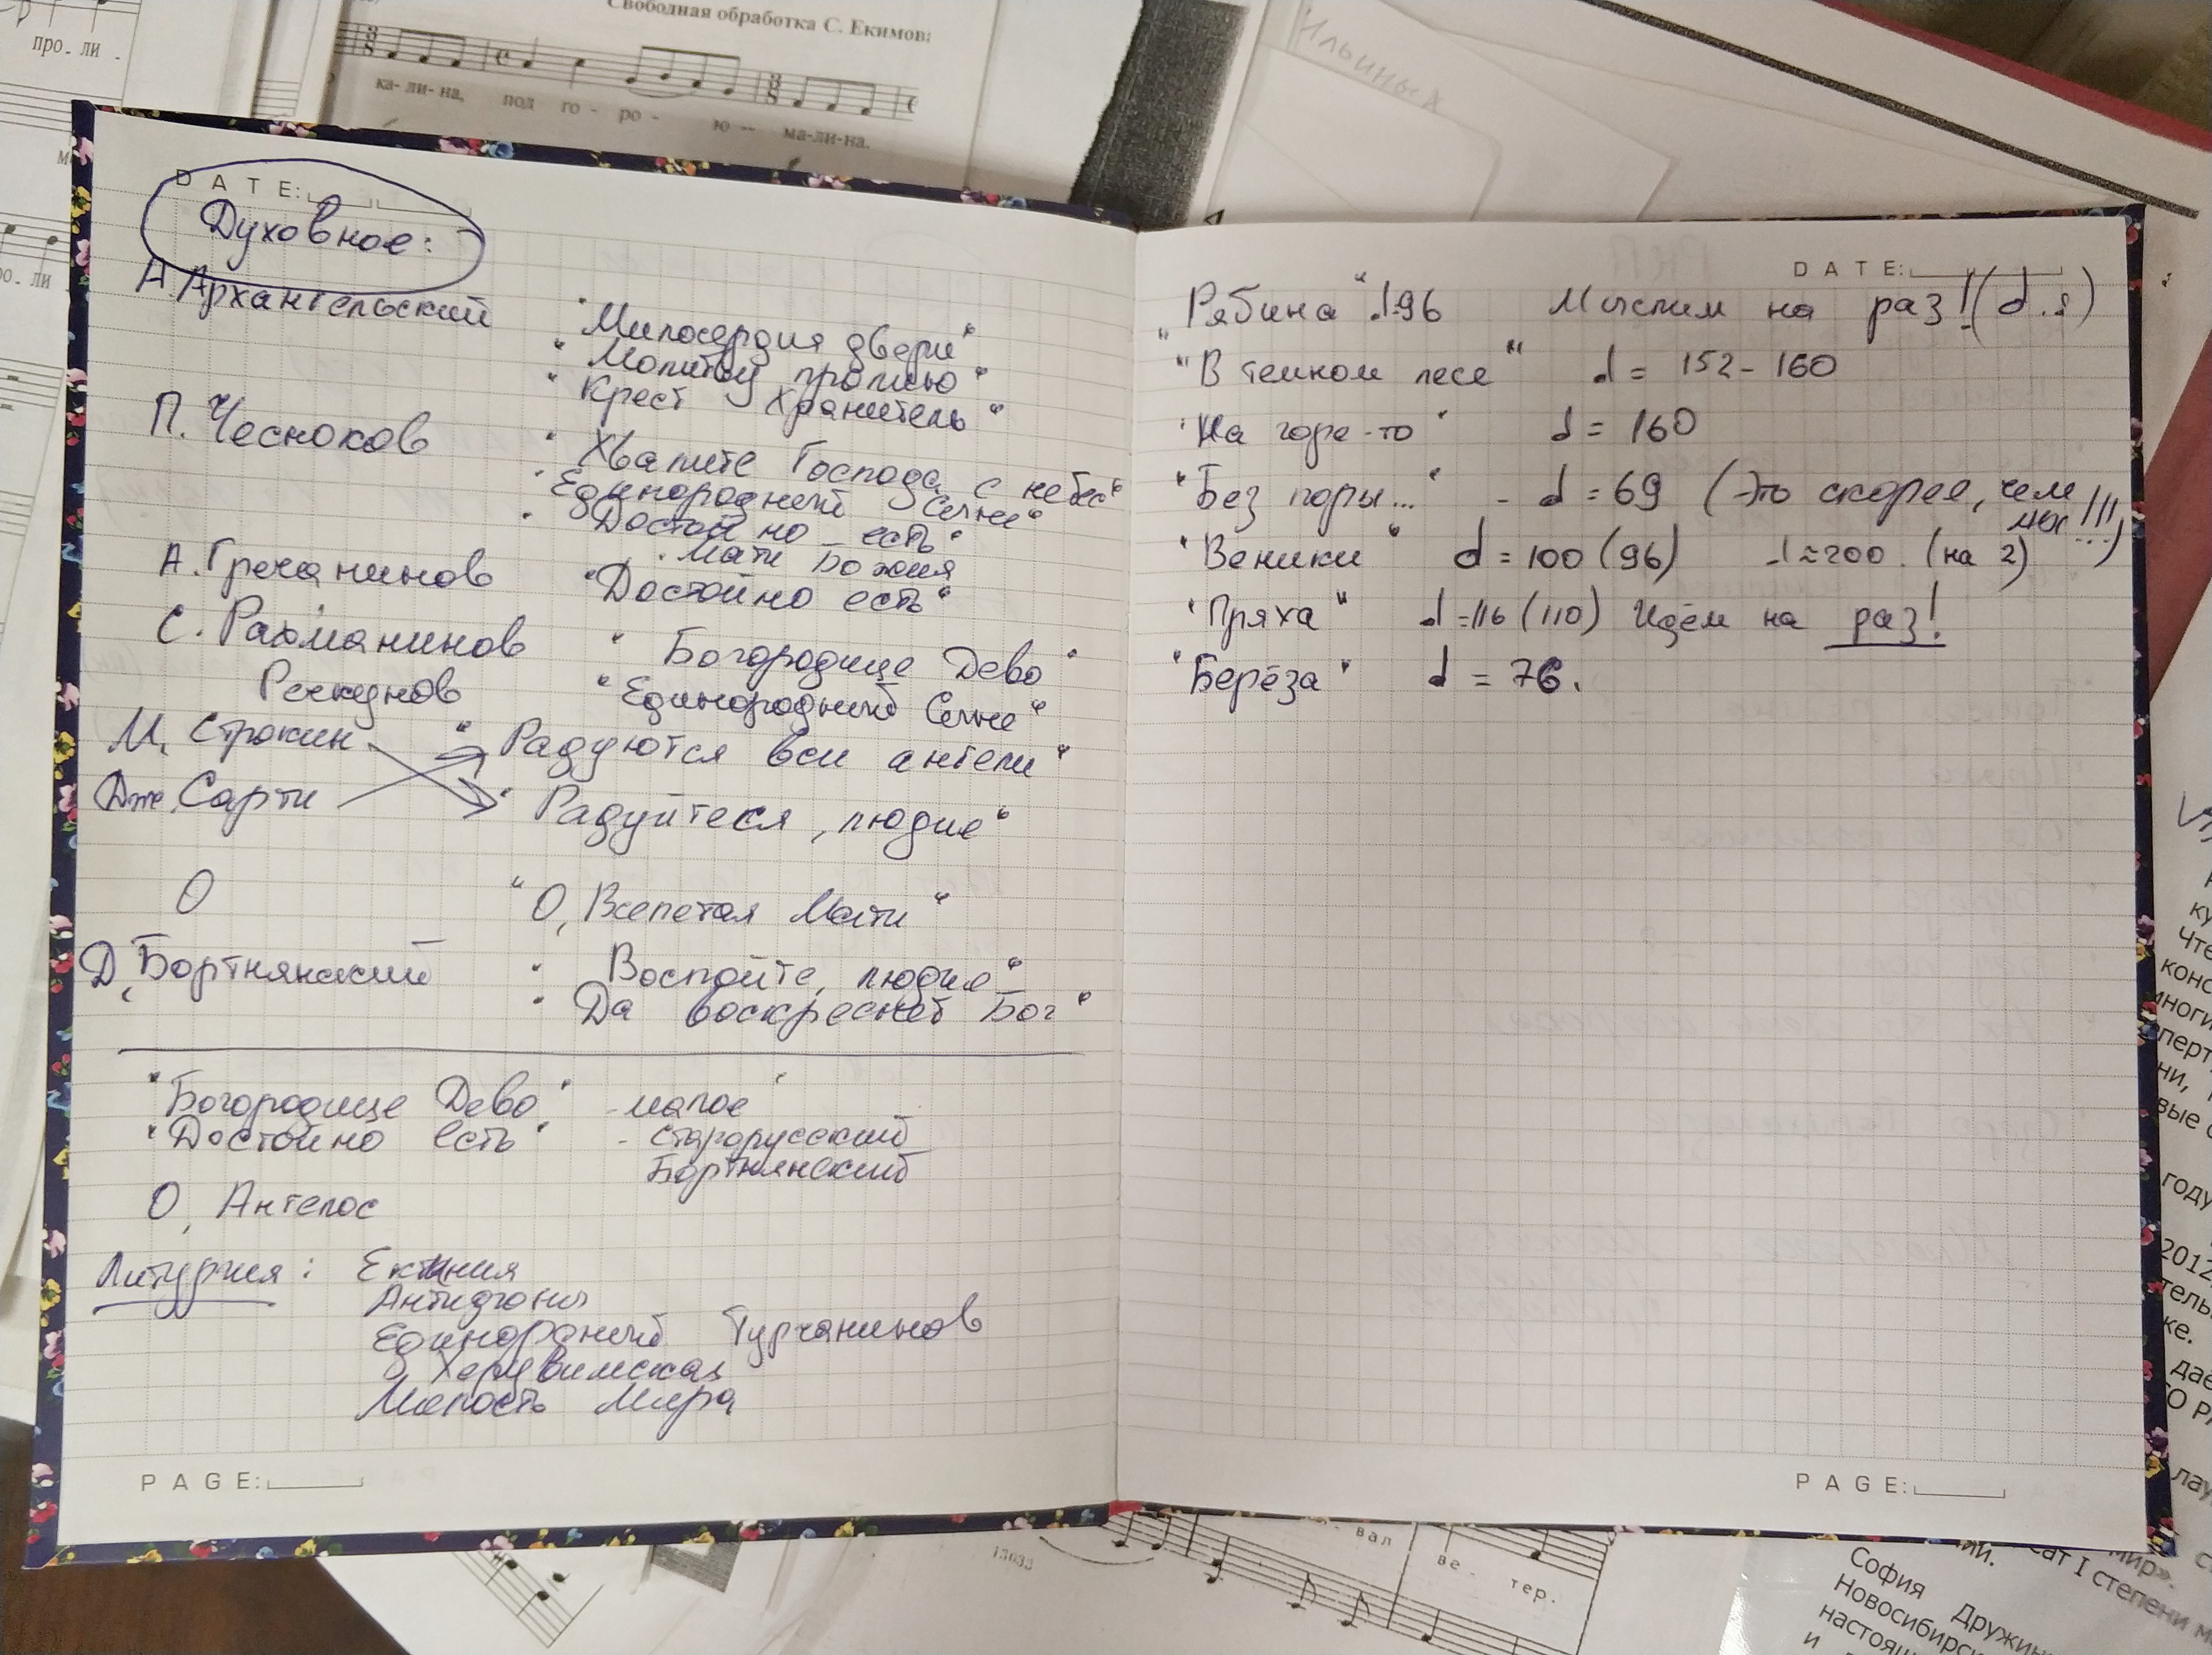 про - ли -
Свободная обработка С. Екимова
ка- ли- на, под го - ро - ю -- ма-ли-на.
Ильиных
ро. ли
DATE:
Духовное:
А. Архангельский "Милосердия двери"
"Молитву пролию"
"Крест хранитель"
П. Чесноков "Хвалите Господа с небес"
"Единородный Сыне"
"Достойно есть"
"Мати Божия
А. Гречанинов "Достойно есть"
С. Рахманинов "Богородице Дево"
"Единородный Сыне"
М. Строкин "Радуются вси ангели"
Дж. Сарти "Радуйтеся, людие"
О "О, Всепетая Мати"
Д. Бортнянский "Воспойте, людие"
"Да воскреснет Бог"
"Богородице Дево" - малое
"Достойно есть" - старорусский
Бортнянский
О, Ангелос
Литургия: Ектиния
Антифоны
Единородный Турчанинов
Херувимская
Милость мира
PAGE:
DATE:
"Рябина" ♩.=96 Мыслим на раз! (♩.)
"В темном лесе" ♩ = 152 - 160
"На горе-то" ♩ = 160
"Без поры..." - ♩ = 69 (Это скорее, чем
мы!!!...)
"Веники" ♩ = 100 (96) ♩ ≈ 200. (на 2)
"Пряха" ♩ = 116 (110) Идём на раз!
"Берёза" ♩ = 76.
PAGE:
13033
вал ве - тер.
году
2012
ке.
сат I степени
мир».
София Дружин
Новосибирс
настоящ
и